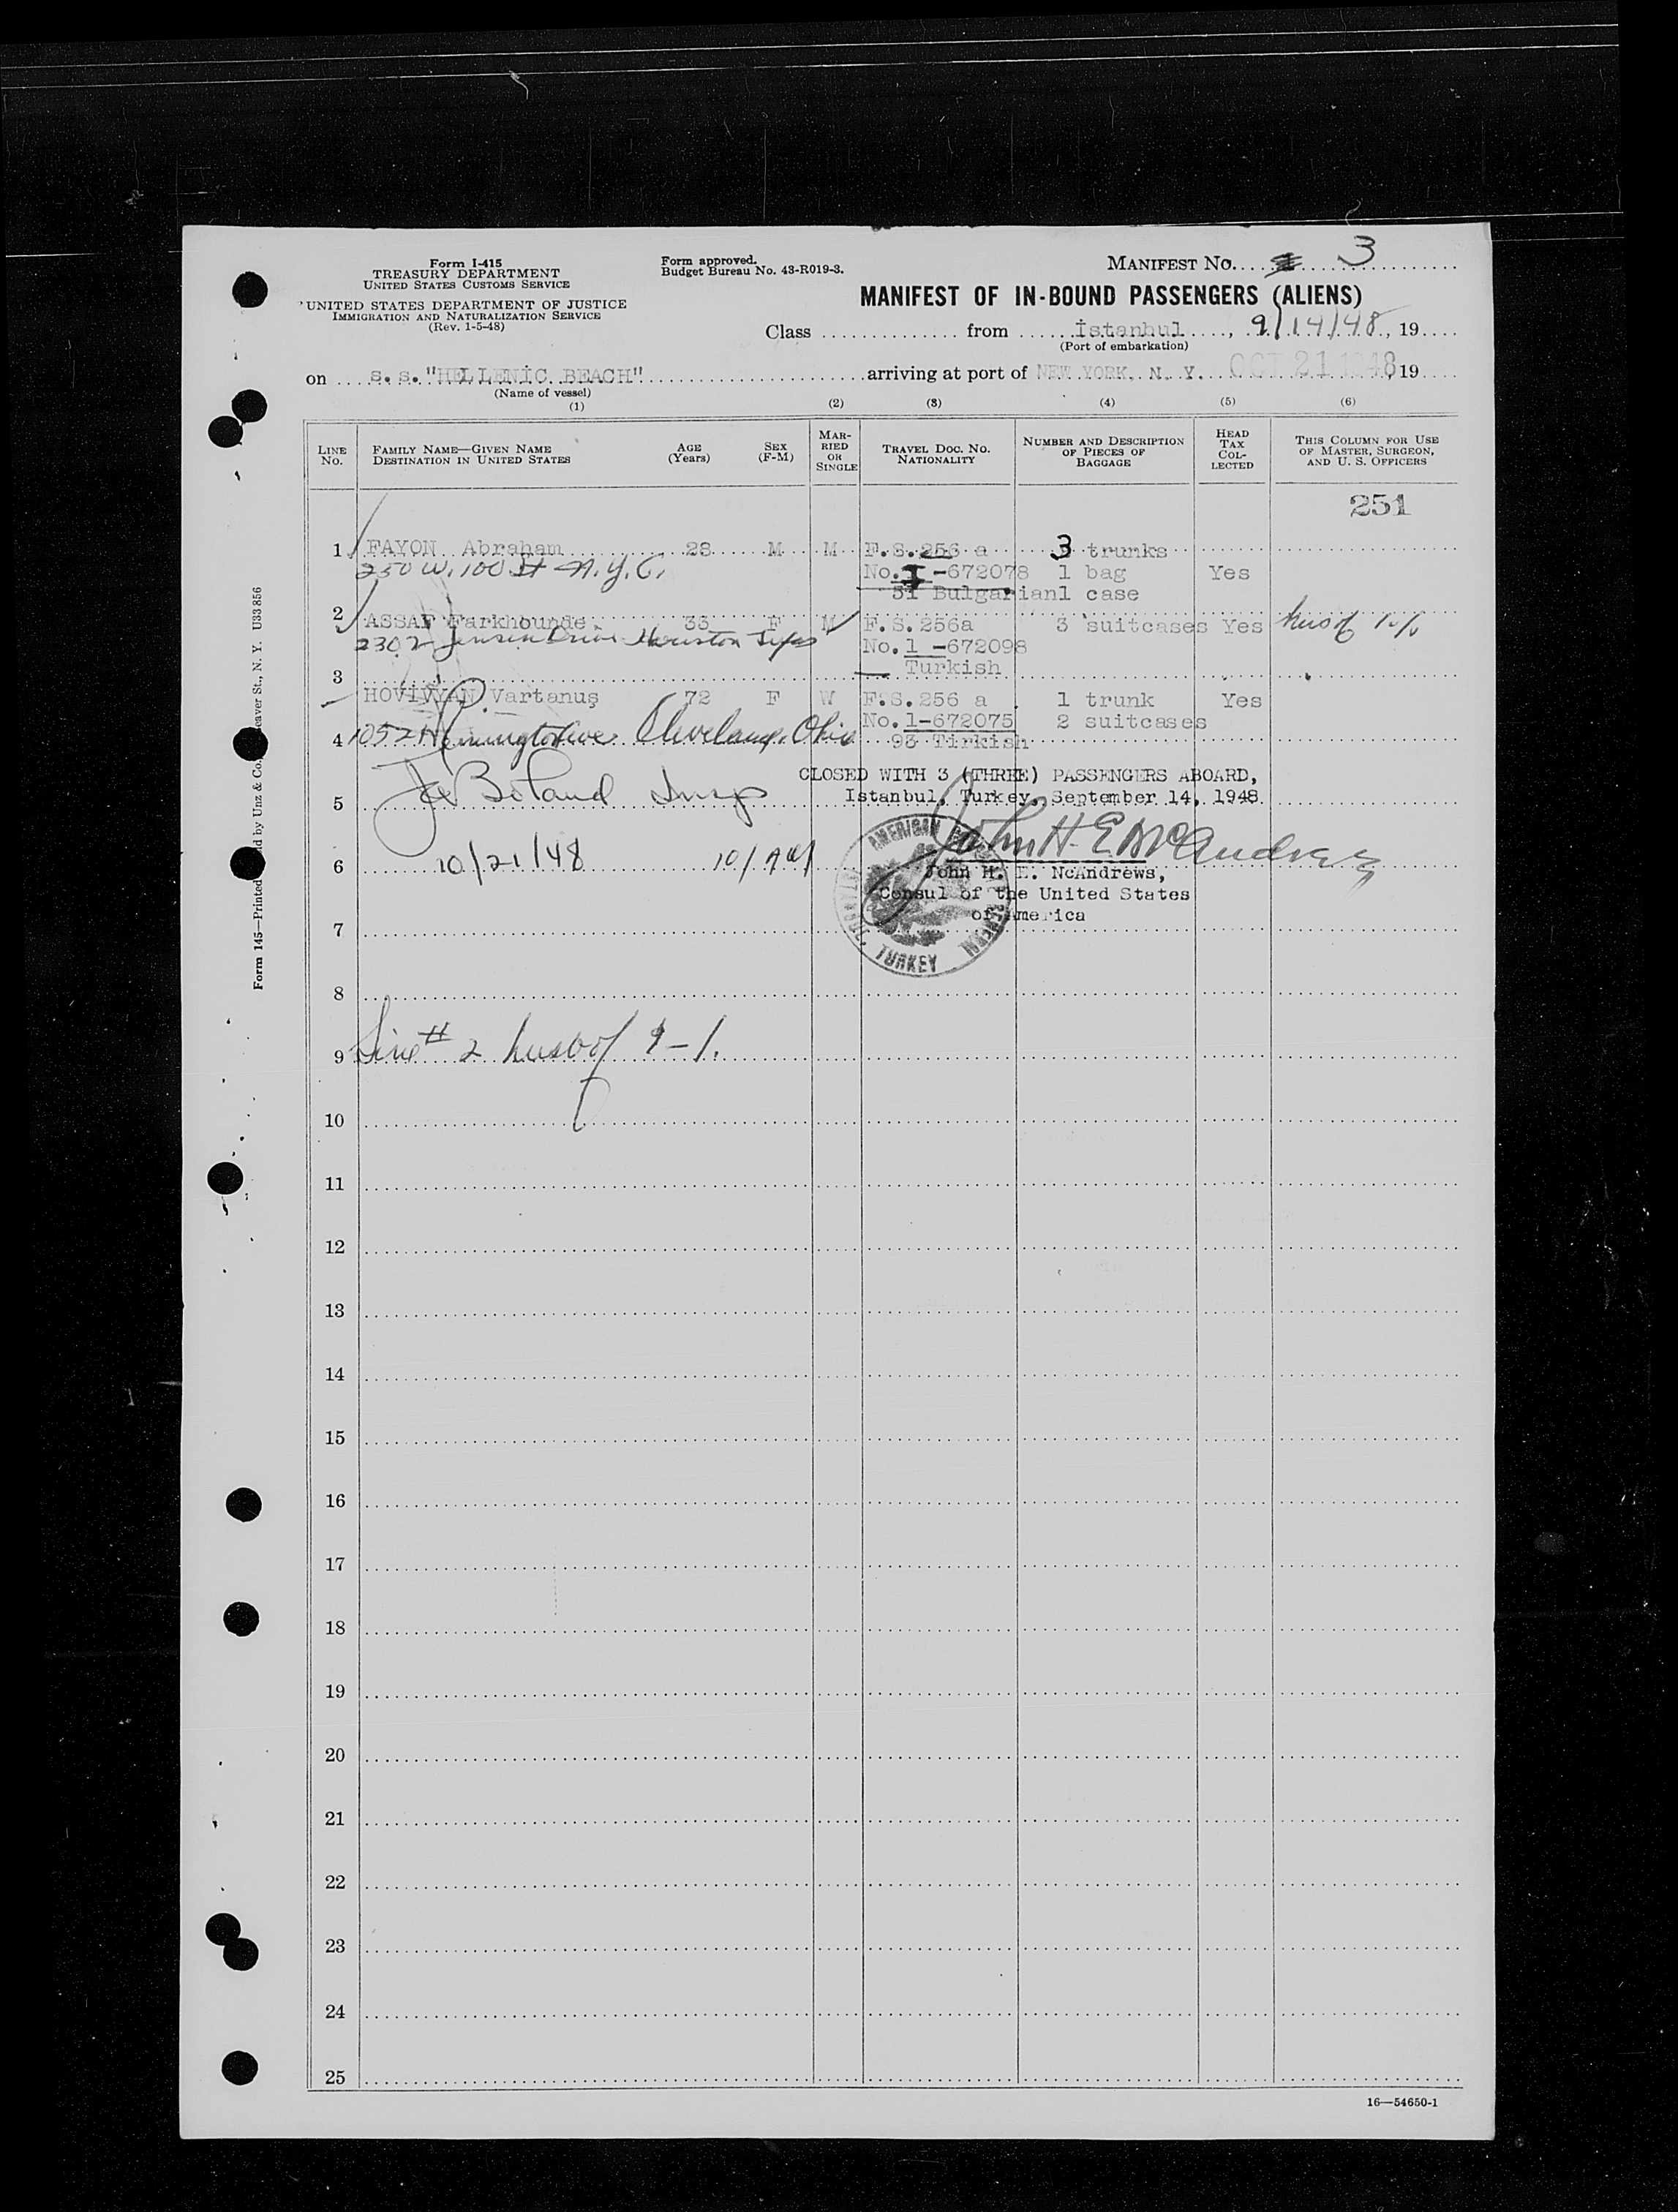 Form I-415
TREASURY DEPARTMENT
UNITED STATES CUSTOMS SERVICE
UNITED STATES DEPARTMENT OF JUSTICE
IMMIGRATION AND NATURALIZATION SERVICE
(Rev. 1-5-48)
Form approved.
Budget Bureau No. 43-R019-3.
MANIFEST No. 3
MANIFEST OF IN-BOUND PASSENGERS (ALIENS)
Class from İstanbul, 9/14/48, 19
(Port of embarkation)
on s.s. "HELLENİC BEACH" arriving at port of NEW YORK, N. Y. OCT 21 1948, 19
(Name of vessel)
(1) (2) (3) (4) (5) (6)
LINE No. FAMILY NAME—GIVEN NAME DESTINATION IN UNITED STATES AGE (Years) SEX (F-M) MARRIED OR SINGLE TRAVEL DOC. No. NATIONALITY NUMBER AND DESCRIPTION OF PIECES OF BAGGAGE HEAD TAX COLLECTED THIS COLUMN FOR USE OF MASTER, SURGEON, AND U. S. OFFICERS
251
1 FAYON Abraham 28 M M F.S.256 a 3 trunks
250 W. 100 St N.Y.C. No. I-672078 1 bag Yes
51 Bulgarian 1 case
2 ASSAF Farkhounde 33 F M F.S.256a 3 suitcases Yes
2302 Jensen Drive Houston No. 1-672098
3 Turkish
HOVIVYAN Vartanuş 72 F W F.S.256 a 1 trunk Yes
No. 1-672075 2 suitcases
4 Cleveland, Ohio 93 Tirkish
CLOSED WITH 3 (THREE) PASSENGERS ABOARD,
5 Istanbul, Turkey, September 14, 1948
John H. E. McAndrews
6 10/21/48
John H. E. NcAndrews,
Consul of the United States
of America
AMERICAN
TURKEY
7
8
9 Line # 2 husb of 9-1.
10
11
12
13
14
15
16
17
18
19
20
21
22
23
24
25
16—54650-1
Form 145—Printed and by Unz & Co., eaver St., N. Y. U33856